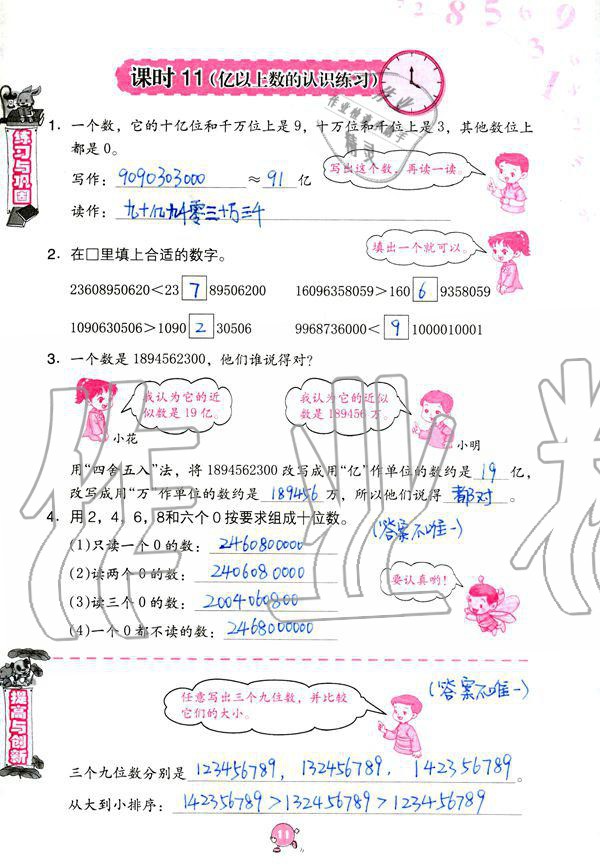 8 5 6 9
课时 11（亿以上数的认识练习）
练习与巩固
1. 一个数，它的十亿位和千万位上是9，十万位和千位上是3，其他数位上
都是0。
写作：9090303000 ≈ 91 亿
写出这个数，再读一读。
读作：九十亿九千零三十万三千
2. 在□里填上合适的数字。
填出一个就可以。
23608950620＜23 7 89506200 16096358059＞160 6 9358059
1090630506＞1090 2 30506 9968736000＜ 9 1000010001
3. 一个数是 1894562300，他们谁说得对？
我认为它的近
似数是 19 亿。
小花
我认为它的近似
数是 189456 万。
小明
用“四舍五入”法，将 1894562300 改写成用“亿”作单位的数约是 19 亿，
改写成用“万”作单位的数约是 189456 万，所以他们说得 都对 。
4. 用 2，4，6，8和六个 0 按要求组成十位数。
（答案不唯一）
(1)只读一个 0 的数：2460800000
(2)读两个 0 的数：2406080000
(3)读三个 0 的数：2004060800
(4)一个 0 都不读的数：2468000000
要认真哟！
提高与创新
任意写出三个九位数，并比较
它们的大小。
（答案不唯一）
三个九位数分别是 123456789，133456789，142356789。
从大到小排序：142356789＞133456789＞123456789
11